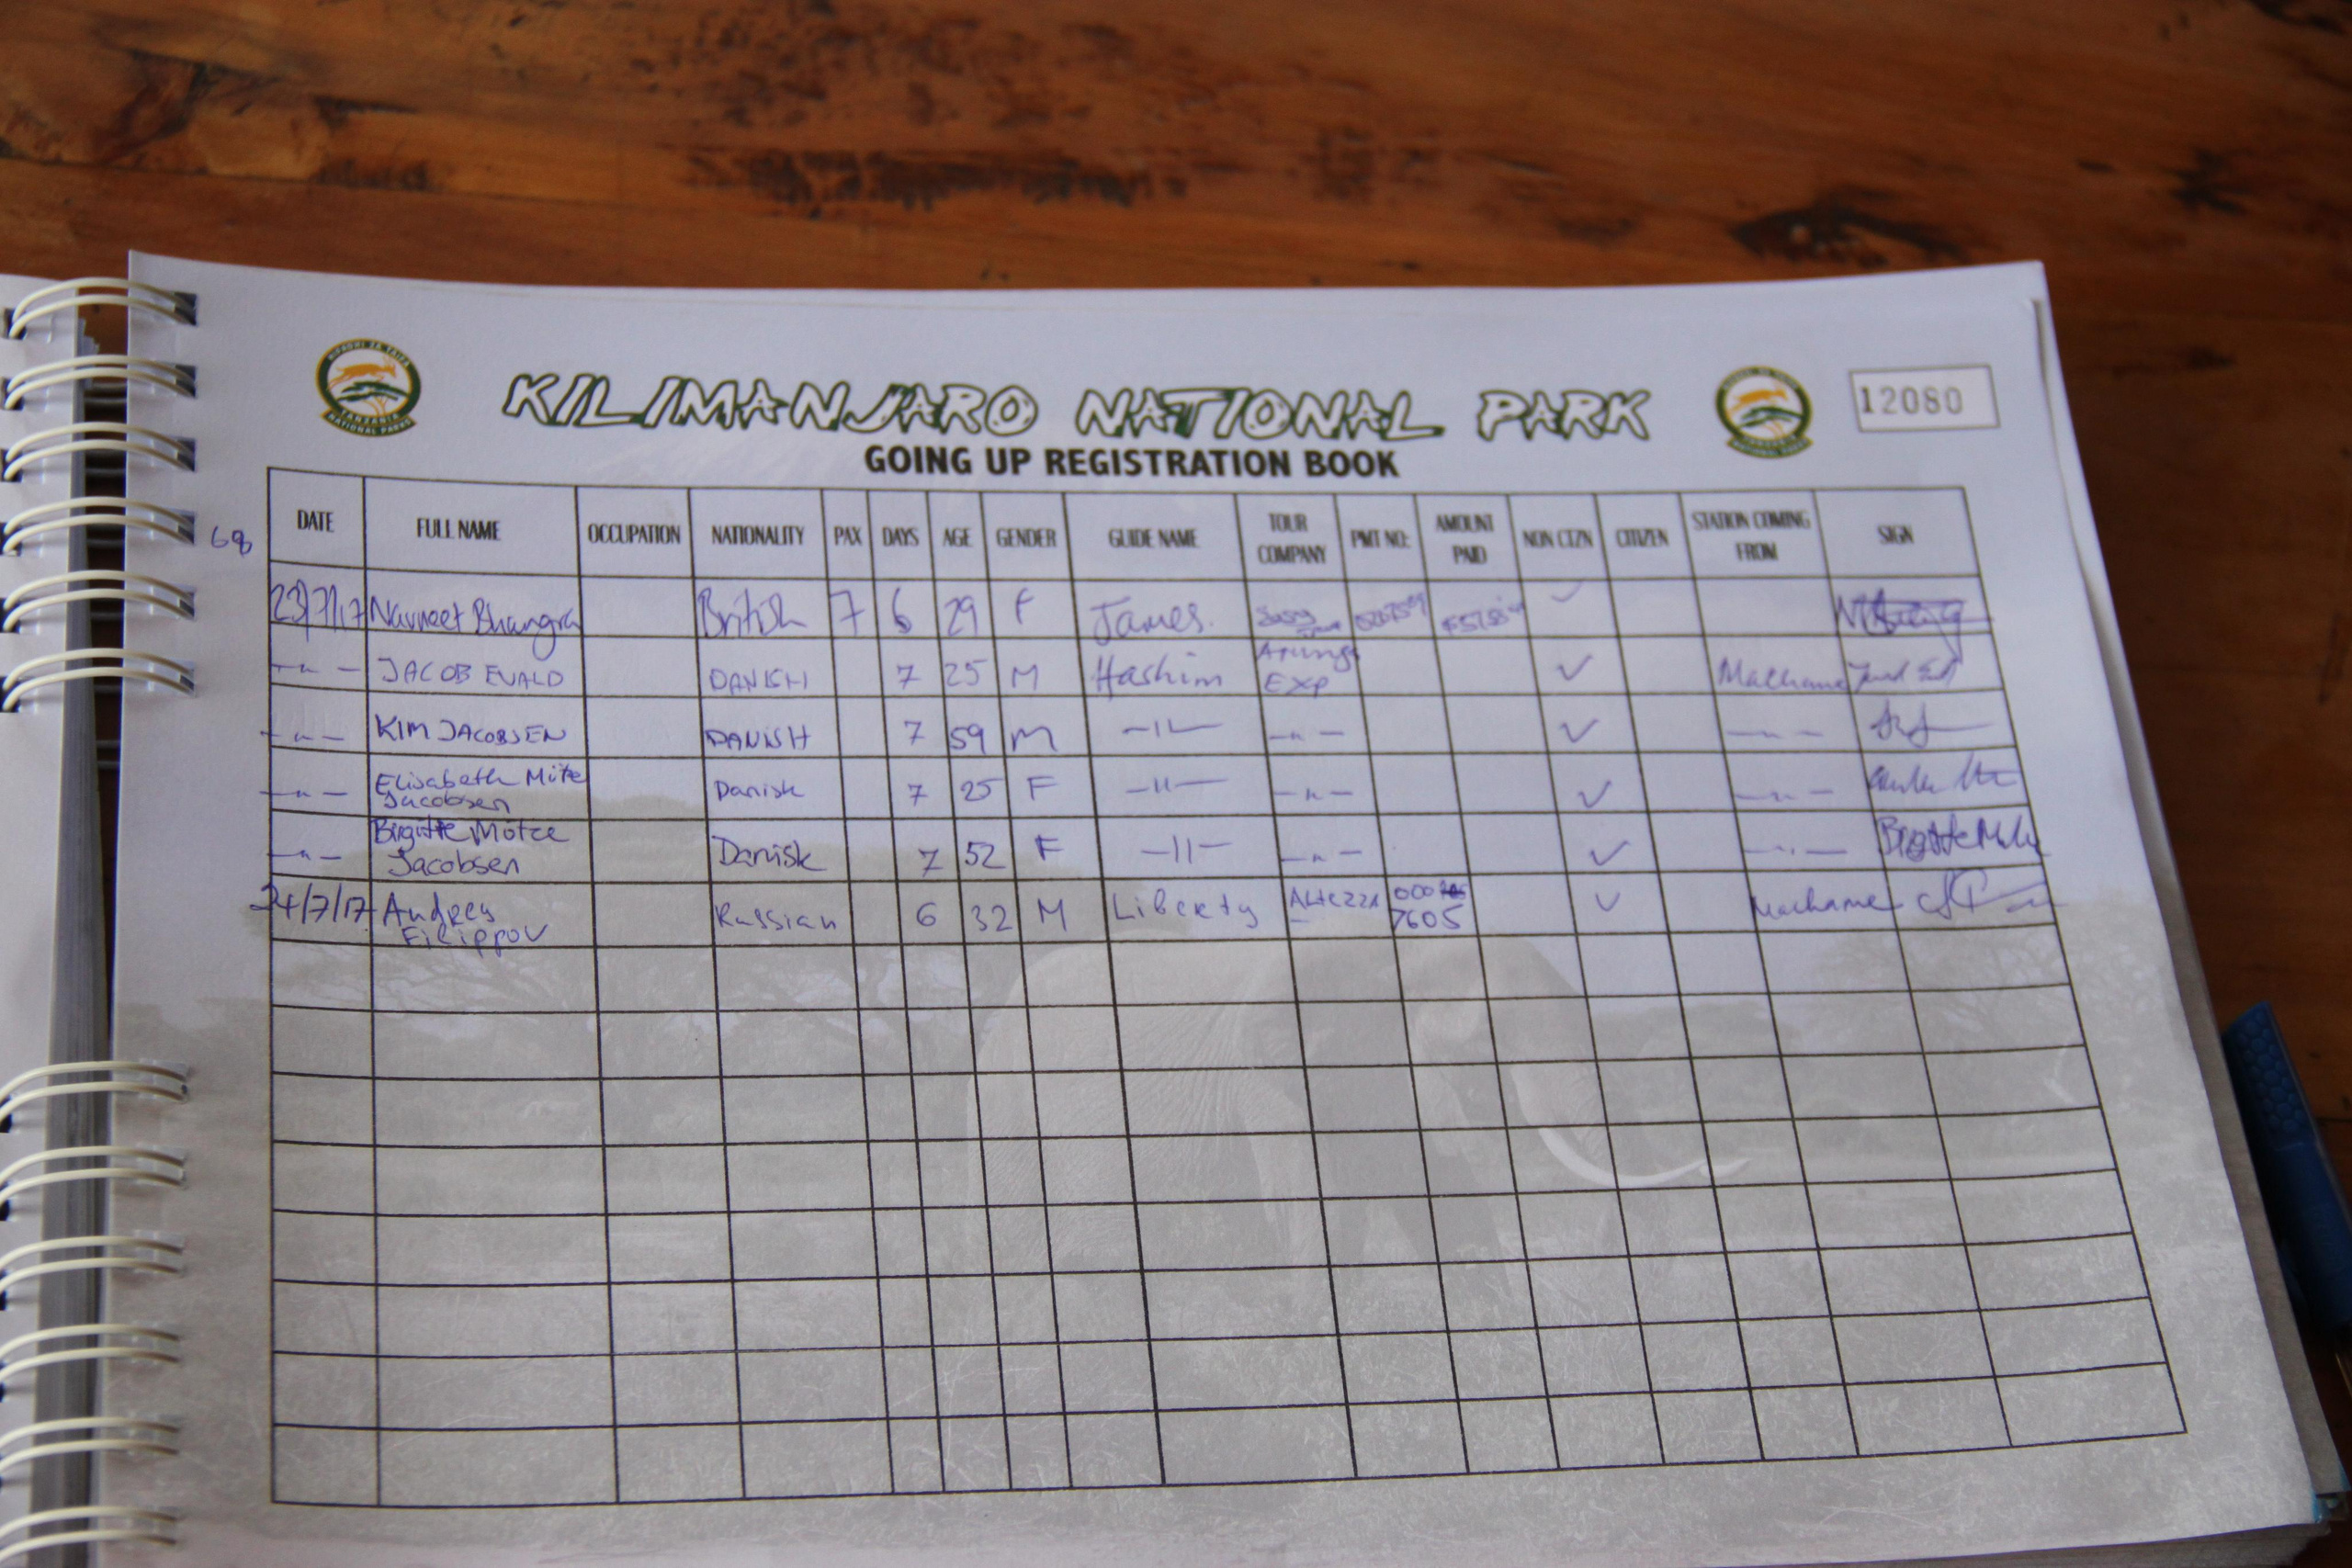 HIFADHI ZA TAIFA
TANZANIA
NATIONAL PARKS
KILIMANJARO NATIONAL PARK
12080
GOING UP REGISTRATION BOOK
68
DATE FULL NAME OCCUPATION NATIONALITY PAX DAYS AGE GENDER GUIDE NAME TOUR COMPANY PMT NO: AMOUNT PAID NON CTZN CITIZEN STATION COMING FROM SIGN
23/7/17 Navneet Bhangra British 7 6 29 F James.
JACOB EVALD DANISH 7 25 M Hashim EXP Machame
KIM JACOBSEN DANISH 7 59 M
Elisabeth
Jacobsen Danish 7 25 F
Birgitte
Jacobsen Danish 7 52 F
24/7/17 Andrey Russian 6 32 M Liberty Altezza 000
Filippov 7605 Machame